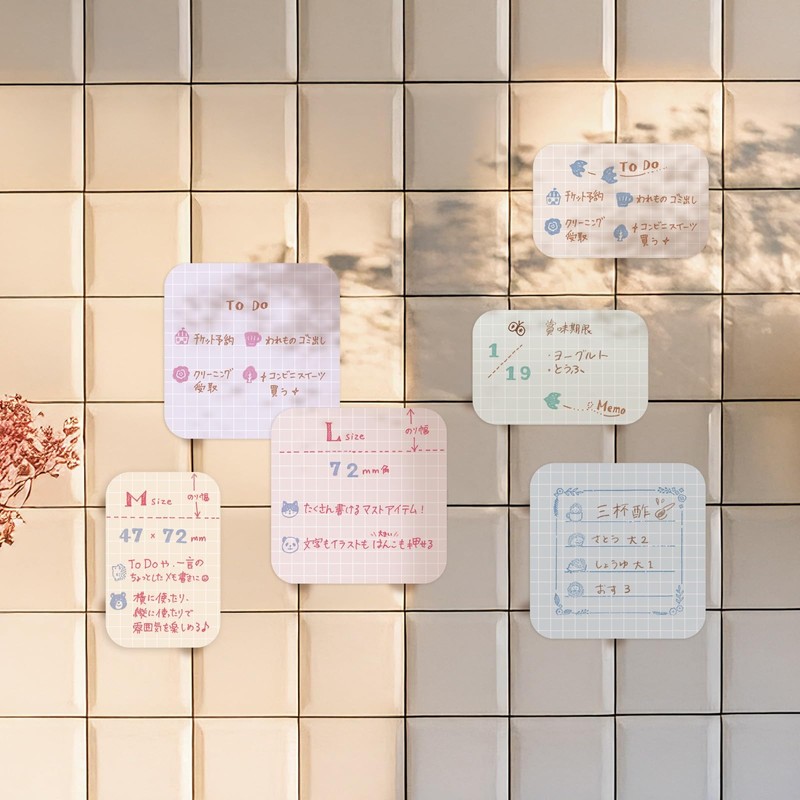 To Do
チケット予約
われもの ゴミ出し
クリーニング
受取
コンビニスイーツ
買う
賞味期限
1
19
・ヨーグルト
・とうふ
Memo
To Do
チケット予約
われもの ゴミ出し
クリーニング
受取
コンビニスイーツ
買う
L size
のり幅
72mm角
たくさん書けるマストアイテム！
大きい
文字もイラストもはんこも押せる
M size
のり幅
47 × 72 mm
To Doや、一言の
ちょっとしたメモ書きに☺
横に使ったり、
縦に使ったりで
雰囲気を楽しめる♪
三杯酢
さとう 大2
しょうゆ 大1
おす 3